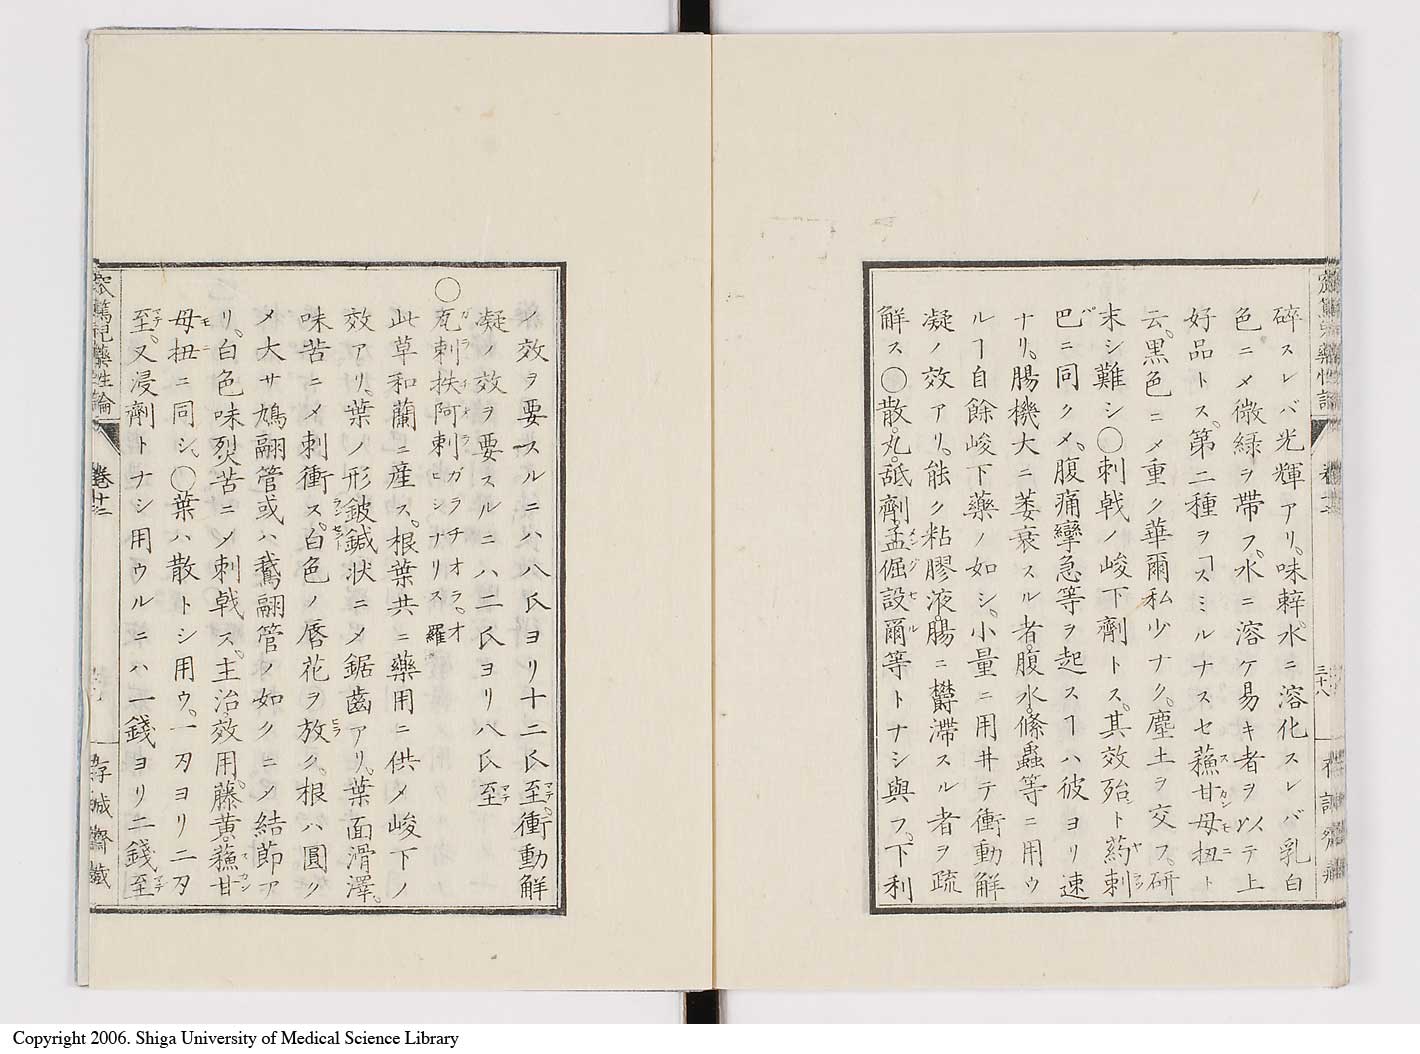 碎スレバ光輝アリ。味辢。水ニ溶化スレバ乳白
色ニメ微綠ヲ帶フ。水ニ溶ケ易キ者ヲ以テ上
好品トス。第二種ヲ「スミルナスセ蘓甘母扭ト
云。黑色ニメ重ク華爾私少ナク。塵土ヲ交フ。研
末シ難シ〇刺戟ノ峻下劑トス。其效殆ト葯剌
巴ニ同クメ。腹痛攣急等ヲ起スヿハ彼ヨリ速
ナリ。腸機大ニ萎衰スル者。腹水。條蟲等ニ用ウ
ルヿ自餘峻下藥ノ如シ。小量ニ用井テ衝動解
凝ノ效アリ。能ク粘膠液。腸ニ欝滯スル者ヲ疏
解ス〇散。丸。舐劑孟倔設爾等トナシ與フ。下利
三十八
ノ效ヲ要スルニハ八氏ヨリ十二氏至。衝動解
凝ノ效ヲ要スルニハ二氏ヨリ八氏至
〇瓦剌扶阿剌ヒシナリス ガラチオラ。オ羅。
此草和蘭ニ産ス。根葉共ニ藥用ニ供メ峻下ノ
效アリ。葉ノ形鈹鍼状ニメ鋸齒アリ。葉面滑澤。
味苦ニメ刺衝ス。白色ノ唇花ヲ放ク。根ハ圓ク
メ大サ鳩翮管或ハ鵞翮管ノ如クニメ結節ア
リ。白色味烈苦ニメ刺戟ス。主治效用。藤黄。蘓甘
母扭ニ同シ。〇葉ハ散トシ用ウ。一刃ヨリ二刃
至。又浸劑トナシ用ウルニハ一錢ヨリ二錢至
藥性論
卷廿二
存誠齋藏
Copyright 2006. Shiga University of Medical Science Library